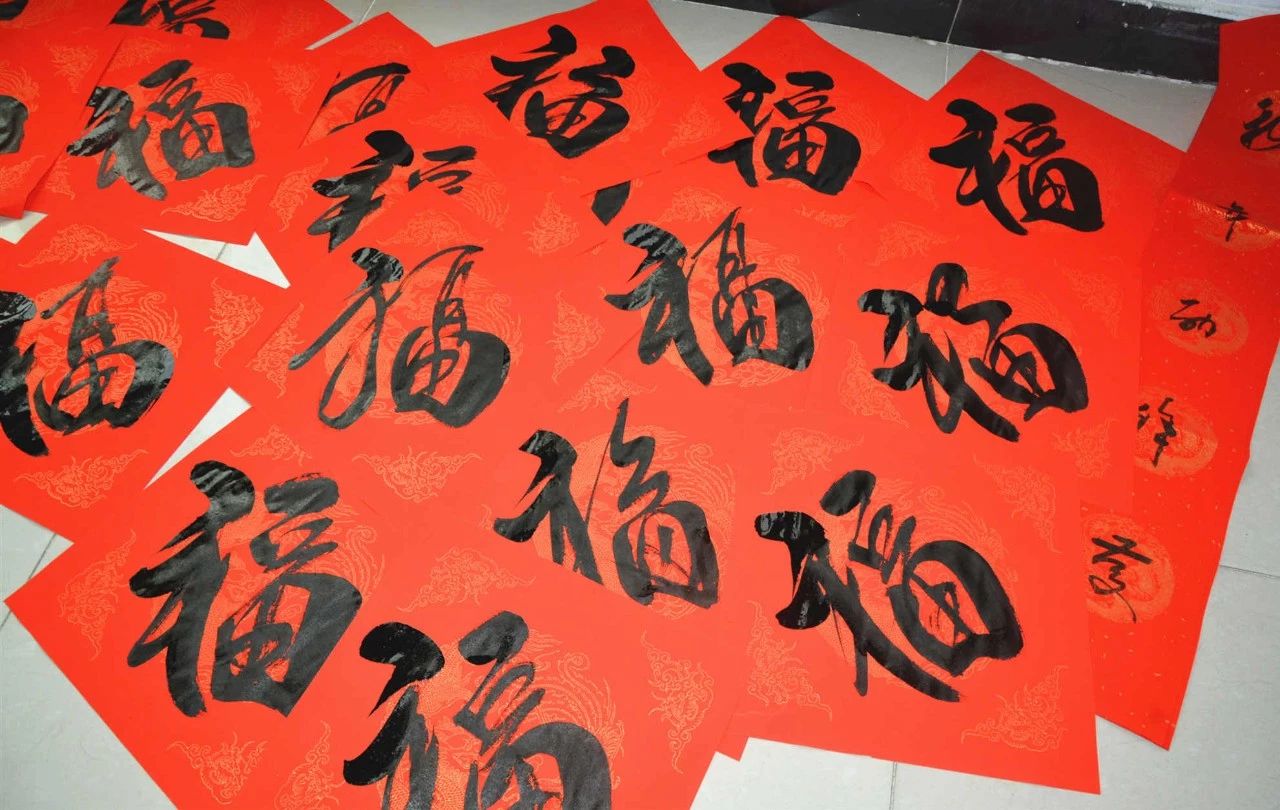 福
福
福
福
福
福
福
福
福
福
福
福
年